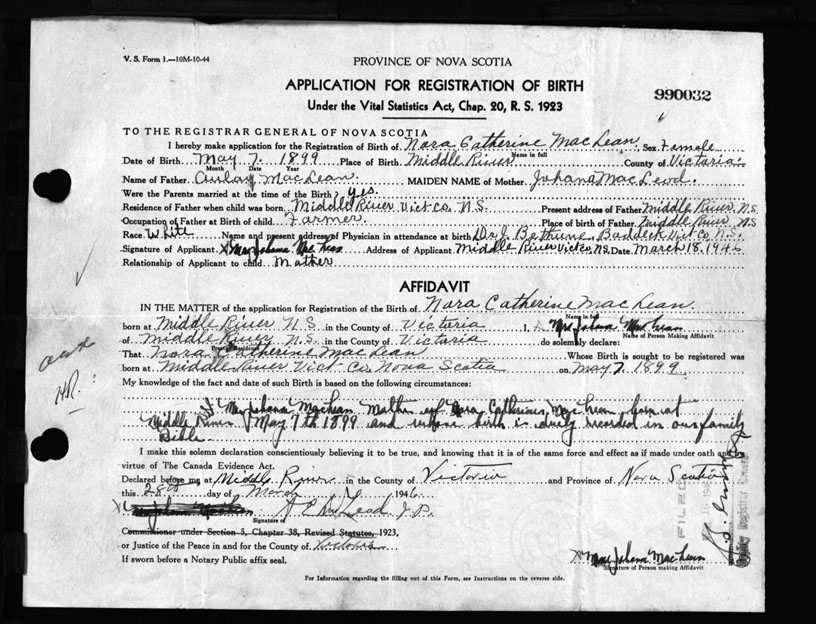 V. S. Form 1.—10M-10-44
PROVINCE OF NOVA SCOTIA
APPLICATION FOR REGISTRATION OF BIRTH
990032
Under the Vital Statistics Act, Chap. 20, R. S. 1923
TO THE REGISTRAR GENERAL OF NOVA SCOTIA
I hereby make application for the Registration of Birth of Nora Catherine MacLean Sex Female
Name in full
Date of Birth May 7. 1899 Place of Birth Middle River County of Victoria
Month Date Year
Name of Father MacLean MAIDEN NAME of Mother Johana MacLeod
Were the Parents married at time of the Birth? yes.
Residence of Father when child was born Middle River Vict Co. N.S. Present address of Father Middle River, N.S.
Occupation of Father at Birth of child Farmer Place of birth of Father Middle River NS
Race White Name and present address of Physician in attendance at birth Dr. J. Bethune Baddeck Vict Co N.S.
Signature of Applicant X Mrs Johana MacLean Address of Applicant Middle River Vict Co. N.S. Date March 18. 1946
Relationship of Applicant to child Mother
AFFIDAVIT
IN THE MATTER of the application for Registration of the Birth of Nora Catherine MacLean
Name in full
born at Middle River N.S. in the County of Victoria I, Mrs Johana MacLean
Name of Person Making Affidavit
of Middle River N.S. in the County of Victoria do solemnly declare:
Present Residence
That Nora Catherine MacLean Whose Birth is sought to be registered was
born at Middle River Vict. Co. Nova Scotia on May 7. 1899
My knowledge of the fact and date of such Birth is based on the following circumstances:
Johana MacLean Mother of Nora Catherine MacLean born at
Middle River May 7th 1899 and whose birth is duly recorded in our family
Bible
I make this solemn declaration conscientiously believing it to be true, and knowing that it is of the same force and effect as if made under oath and by
virtue of The Canada Evidence Act.
Declared before me at Middle River in the County of Victoria and Province of Nova Scotia
this 28th day of March 1946
Signature of J.P.
Commissioner under Section 5, Chapter 38, Revised Statutes, 1923,
or Justice of the Peace in and for the County of Victoria
If sworn before a Notary Public affix seal.
X Mrs Johana MacLean
Signature of Person making Affidavit
For Information regarding the filling out of this Form, see Instructions on the reverse side.
FILED